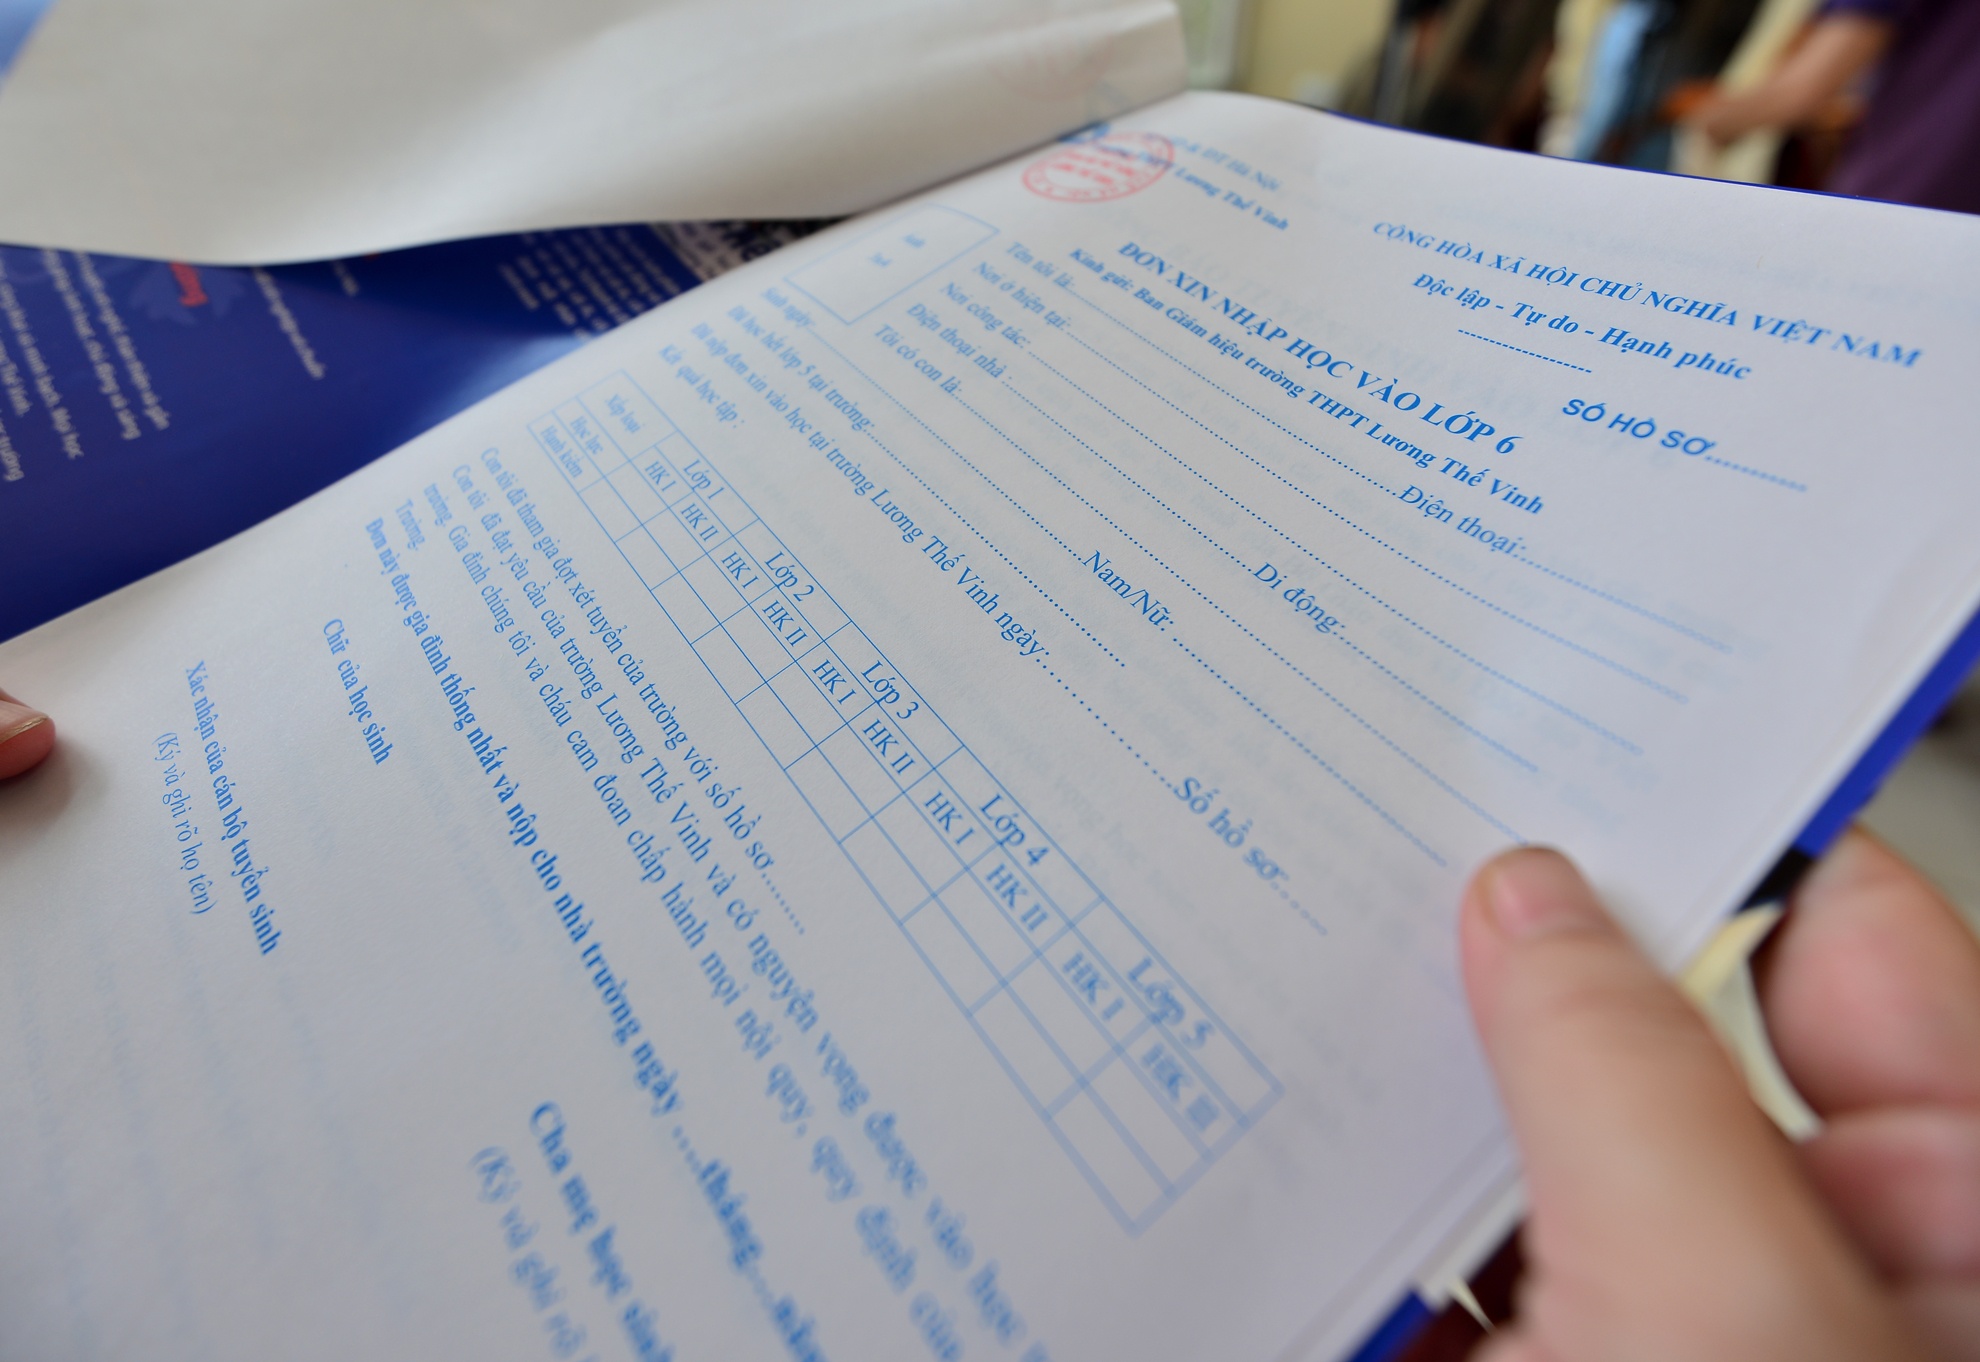 & ĐT Hà Nội
Lương Thế Vinh
CỘNG HÒA XÃ HỘI CHỦ NGHĨA VIỆT NAM
Độc lập - Tự do - Hạnh phúc
SỐ HỒ SƠ...........
ĐƠN XIN NHẬP HỌC VÀO LỚP 6
Kính gửi: Ban Giám hiệu trường THPT Lương Thế Vinh
Ảnh
3x4
Tên tôi là:.......... Điện thoại:..........
Nơi ở hiện tại:..........
Nơi công tác: ..........
Điện thoại nhà :.......... Di động:..........
Tôi có con là:..........
Sinh ngày:.......... Nam/Nữ: ..........
Đã học hết lớp 5 tại trường:..........
Đã nộp đơn xin vào học tại trường Lương Thế Vinh ngày:.......... Số hồ sơ:......
Kết quả học tập :
Xếp loại Lớp 1 Lớp 2 Lớp 3 Lớp 4 Lớp 5
HK I HK II HK I HK II HK I HK II HK I HK II HK I HK II
Học lực
Hạnh kiểm
Con tôi đã tham gia đợt xét tuyển của trường với số hồ sơ.........
Con tôi đã đạt yêu cầu của trường Lương Thế Vinh và có nguyện vọng được vào học
trường. Gia đình chúng tôi và cháu cam đoan chấp hành mọi nội quy, quy định của
Trường.
Đơn này được gia đình thống nhất và nộp cho nhà trường ngày ....tháng....năm
Chữ của học sinh
Cha mẹ học sinh
(Ký và ghi rõ
Xác nhận của cán bộ tuyển sinh
(Ký và ghi rõ họ tên)